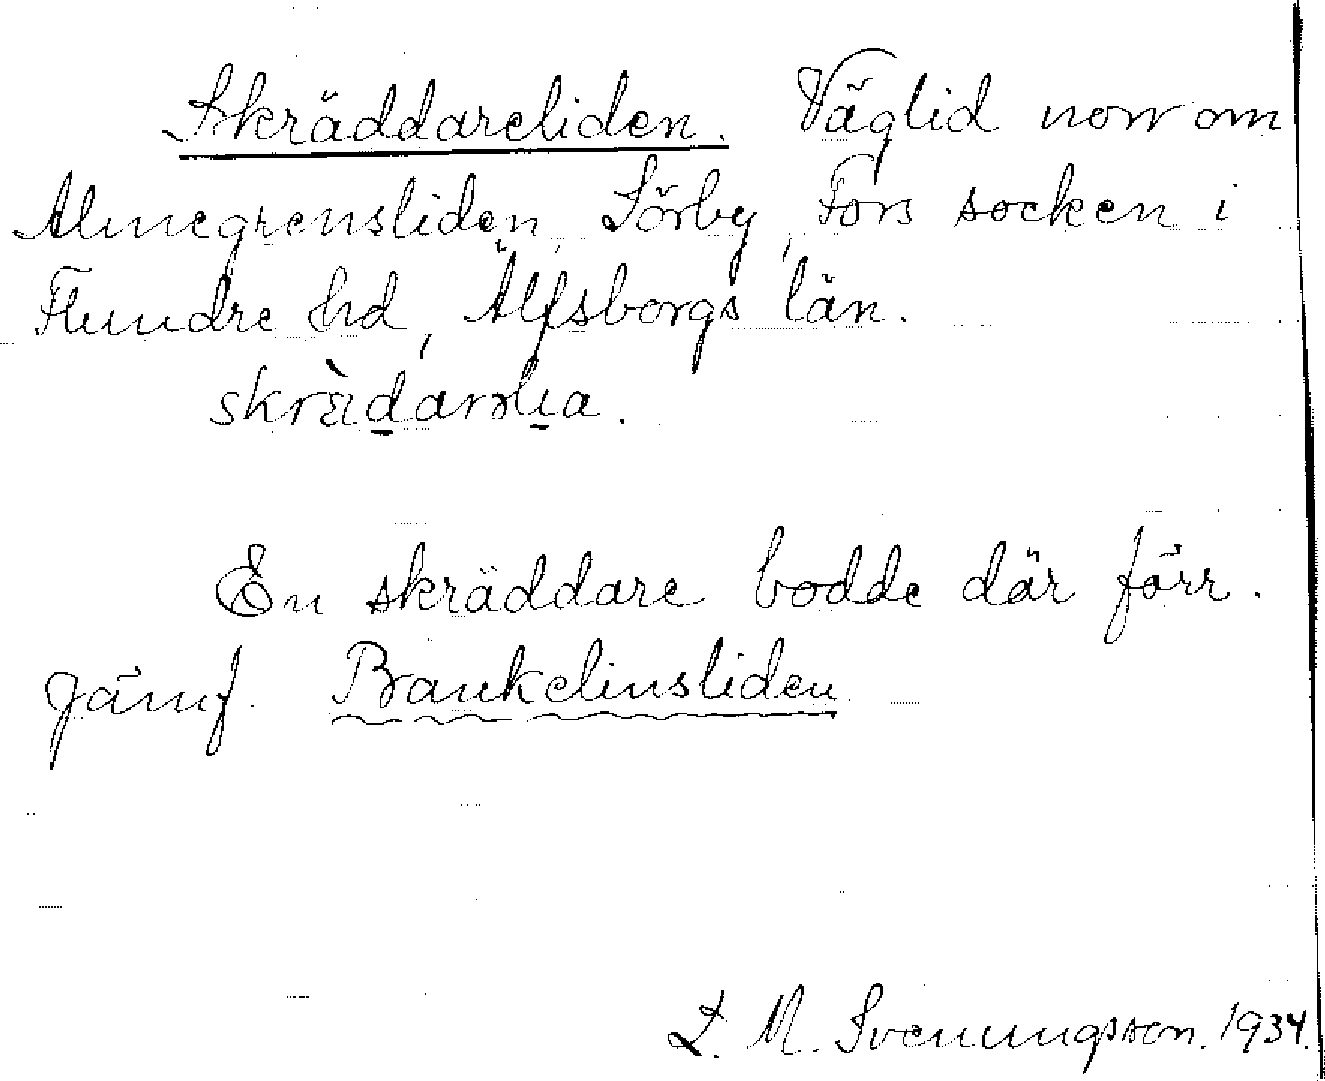 Skräddareliden. Väglid norr om
Almegrensliden, Sörby, Fors socken i
Flundre hd, Älfsborgs län.
En skräddare bodde där förr.
Jämf. Brankelinsliden
S. M. Svenungsson. 1934.